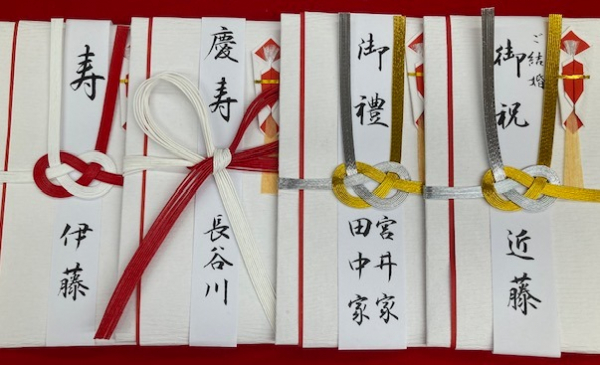 ご結婚
御祝
近藤
御禮
宮井家
田中家
慶寿
長谷川
寿
伊藤